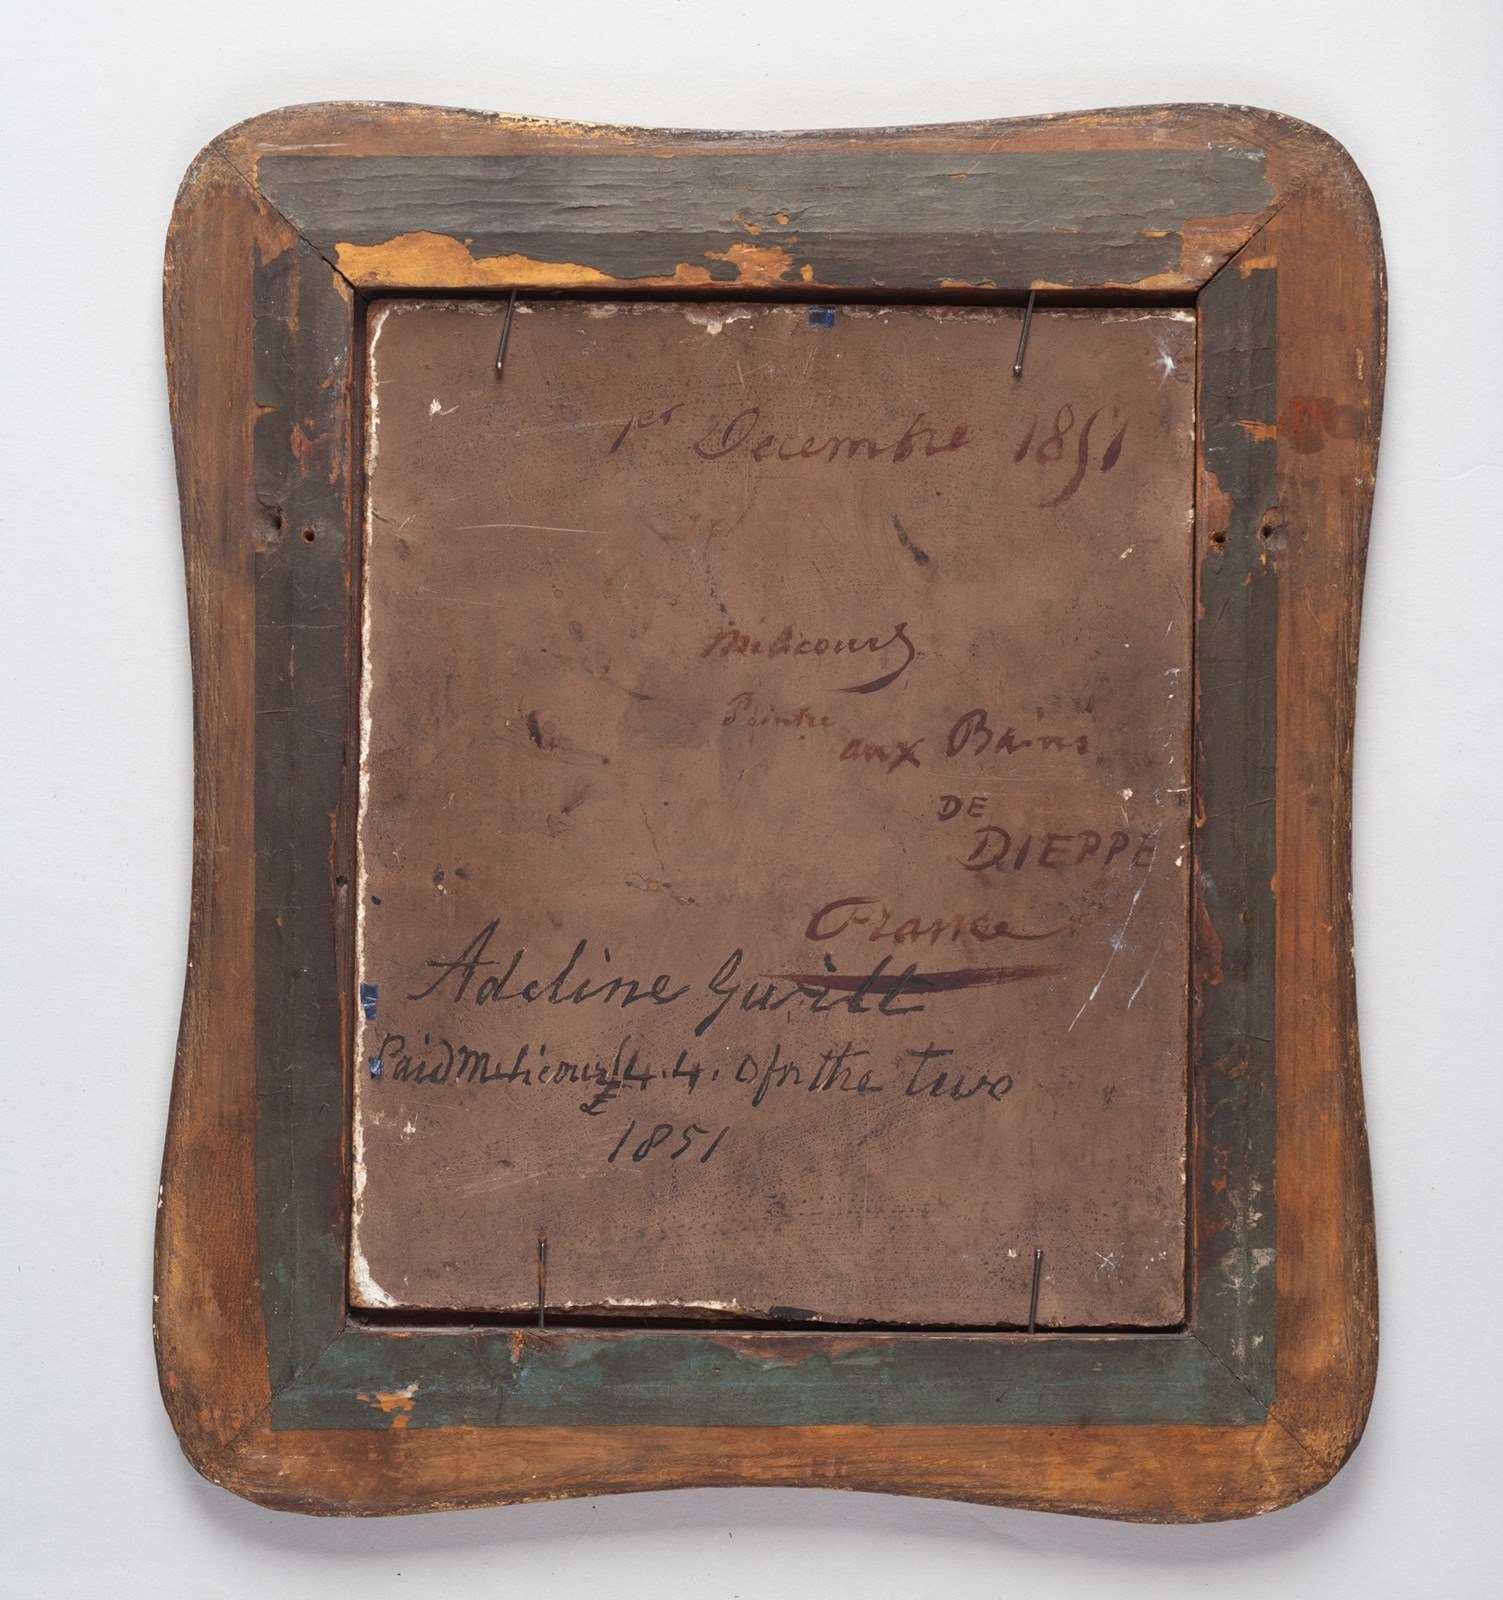 1er Decembre 1851
Melicourt
Peintre
aux Bains
DE
DIEPPE
France
Adeline Gwilt
Paid Melicourt £4.4.0 for the two
1851